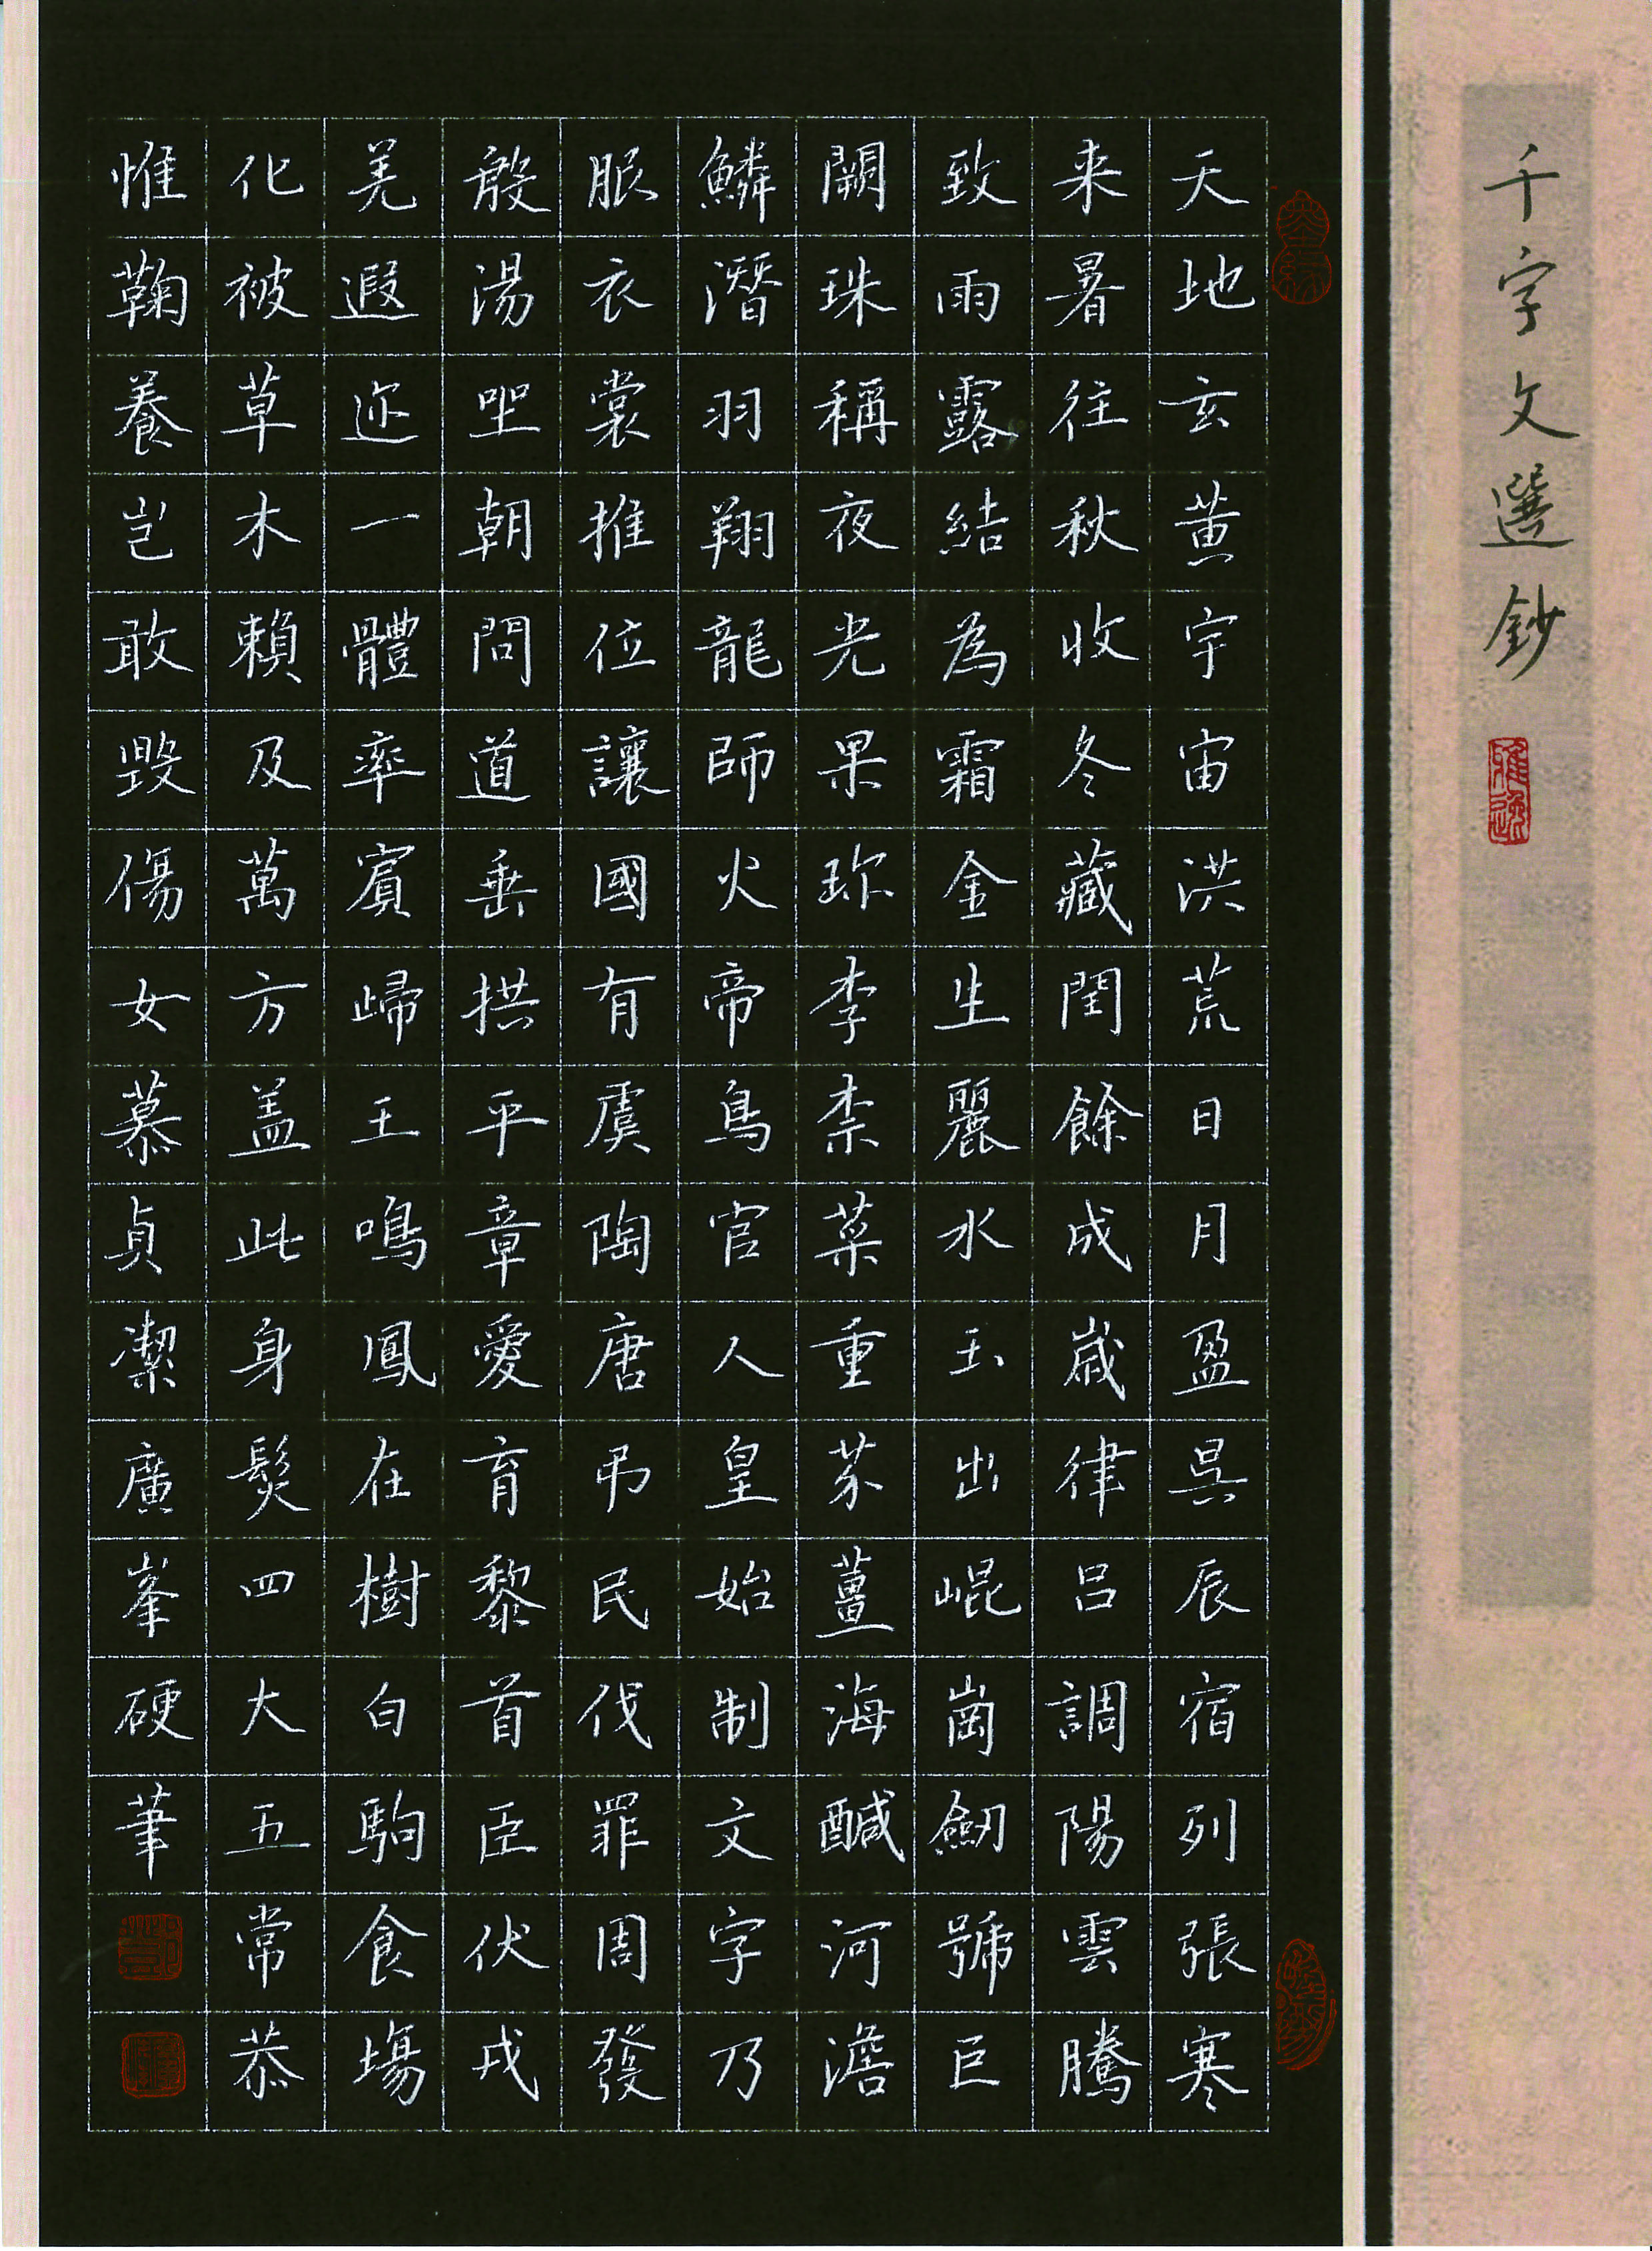 千字文選鈔
雅逸
天地玄黄宇宙洪荒日月盈昃辰宿列張寒
来暑往秋收冬藏閏餘成歲律吕調陽雲騰
致雨露結為霜金生麗水玉出崐崗劒號巨
闕珠稱夜光果珎李柰菜重芥薑海醎河澹
鱗潛羽翔龍師火帝鳥官人皇始制文字乃
服衣裳推位讓國有虞陶唐弔民伐罪周發
殷湯坐朝問道垂拱平章愛育黎首臣伏戎
羌遐迩一體率賓歸王鳴鳳在樹白駒食場
化被草木賴及萬方盖此身髮四大五常恭
惟鞠養豈敢毀傷女慕貞潔廣峯硬筆